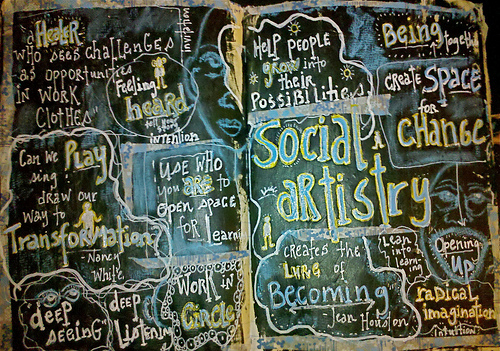 a Healer
who sees challenges
as opportunities
in work
clothes"
intuition
Feeling
heard
tell your
story
intention
Can we Play
sing
draw our
way to
Transformation
-Nancy
White
use who
you are to
open space
for learning
deep
seeing"
deep
Listening
Work in
Circle
Help people
grow into
their
possibilities
Being
together
create Space
for
change
Social
artistry
creates the
Lure of
Becoming"
-Jean Houston
Lean
into
learning
Opening
Up
radical
imagination
intuition